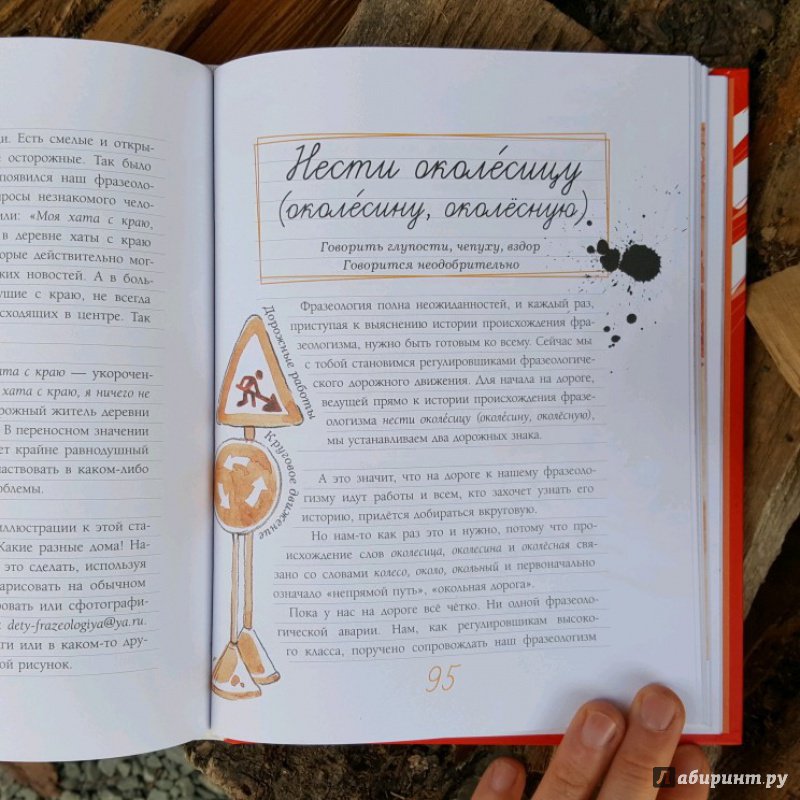 ди. Есть смелые и откры-
е осторожные. Так было
появился наш фразеоло-
просы незнакомого чело-
или: «Моя хата с краю,
в деревне хаты с краю
орые действительно мог-
ких новостей. А в боль-
ущие с краю, не всегда
сходящих в центре. Так
ата с краю — укорочен-
хата с краю, я ничего не
орожный житель деревни
В переносном значении
ет крайне равнодушный
частвовать в каком-либо
облемы.
иллюстрации к этой ста-
Какие разные дома! На-
это сделать, используя
арисовать на обычном
ровать или сфотографи-
dety-frazeologiya@ya.ru.
ги или в каком-то дру-
ой рисунок.
Нести околе́сицу
(околе́сину, околёсную)
Говорить глупости, чепуху, вздор
Говорится неодобрительно
Фразеология полна неожиданностей, и каждый раз,
приступая к выяснению истории происхождения фра-
зеологизма, нужно быть готовым ко всему. Сейчас мы
с тобой становимся регулировщиками фразеологиче-
ского дорожного движения. Для начала на дороге,
ведущей прямо к истории происхождения фразе-
ологизма нести околе́сицу (околе́сину, околёсную),
мы устанавливаем два дорожных знака.
Дорожные работы
Круговое движение
А это значит, что на дороге к нашему фразеоло-
гизму идут работы и всем, кто захочет узнать его
историю, придётся добираться вкруговую.
Но нам-то как раз это и нужно, потому что про-
исхождение слов околесица, околесина и околёсная свя-
зано со словами колесо, около, окольный и первоначально
означало «непрямой путь», «окольная дорога».
Пока у нас на дороге всё чётко. Ни одной фразеоло-
гической аварии. Нам, как регулировщикам высоко-
го класса, поручено сопровождать наш фразеологизм
95
Лабиринт.ру